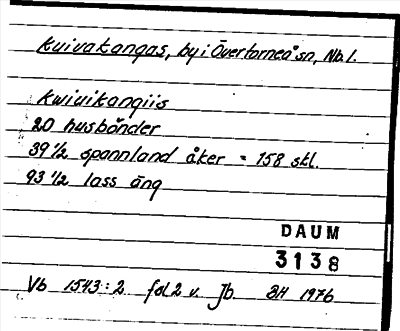 Kuivakangas, by i Övertorneå sn, Nb. l.
Kwiuikangiis
20 husbönder
39 1/2 spannland åker = 158 skl.
93 1/2 lass äng
DAUM
3138
Vb 1543:2 fol 2 v. Jb. BH 1976